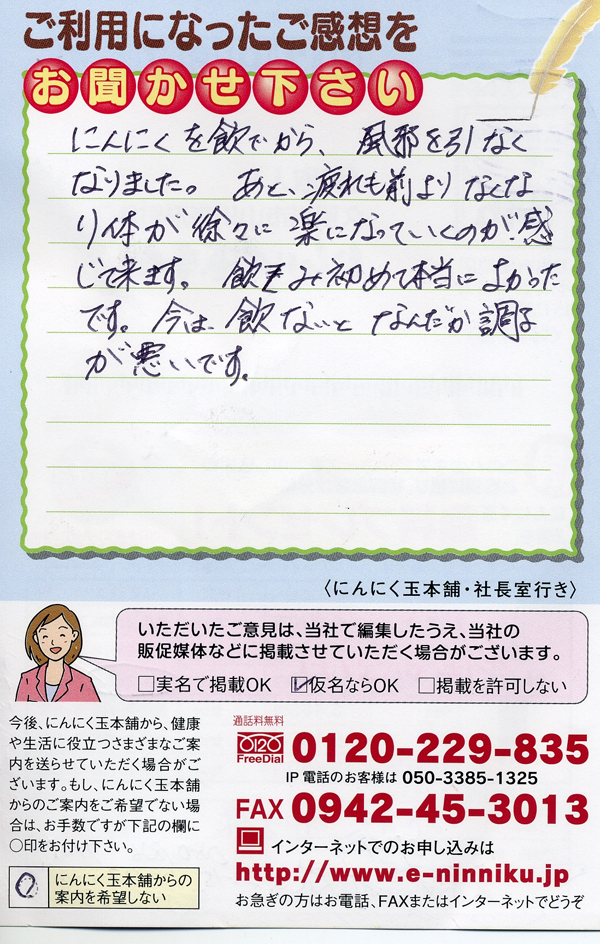 ご利用になったご感想を
お聞かせ下さい
にんにくを飲でから、風邪を引なく
なりました。あと、疲れも前よりなくな
り体が徐々に楽になっていくのが感
じて来ます。飲み初めて本当によかった
です。今は、飲ないとなんだか調子
が悪いです。
〈にんにく玉本舗・社長室行き〉
いただいたご意見は、当社で編集したうえ、当社の
販促媒体などに掲載させていただく場合がございます。
□実名で掲載OK ☑仮名ならOK □掲載を許可しない
今後、にんにく玉本舗から、健康
や生活に役立つさまざまなご案
内を送らせていただく場合がご
ざいます。もし、にんにく玉本舗
からのご案内をご希望でない場
合は、お手数ですが下記の欄に
〇印をお付け下さい。
にんにく玉本舗からの
案内を希望しない
通話料無料
FreeDial 0120-229-835
IP電話のお客様は 050-3385-1325
FAX 0942-45-3013
インターネットでのお申し込みは
http://www.e-ninniku.jp
お急ぎの方はお電話、FAXまたはインターネットでどうぞ